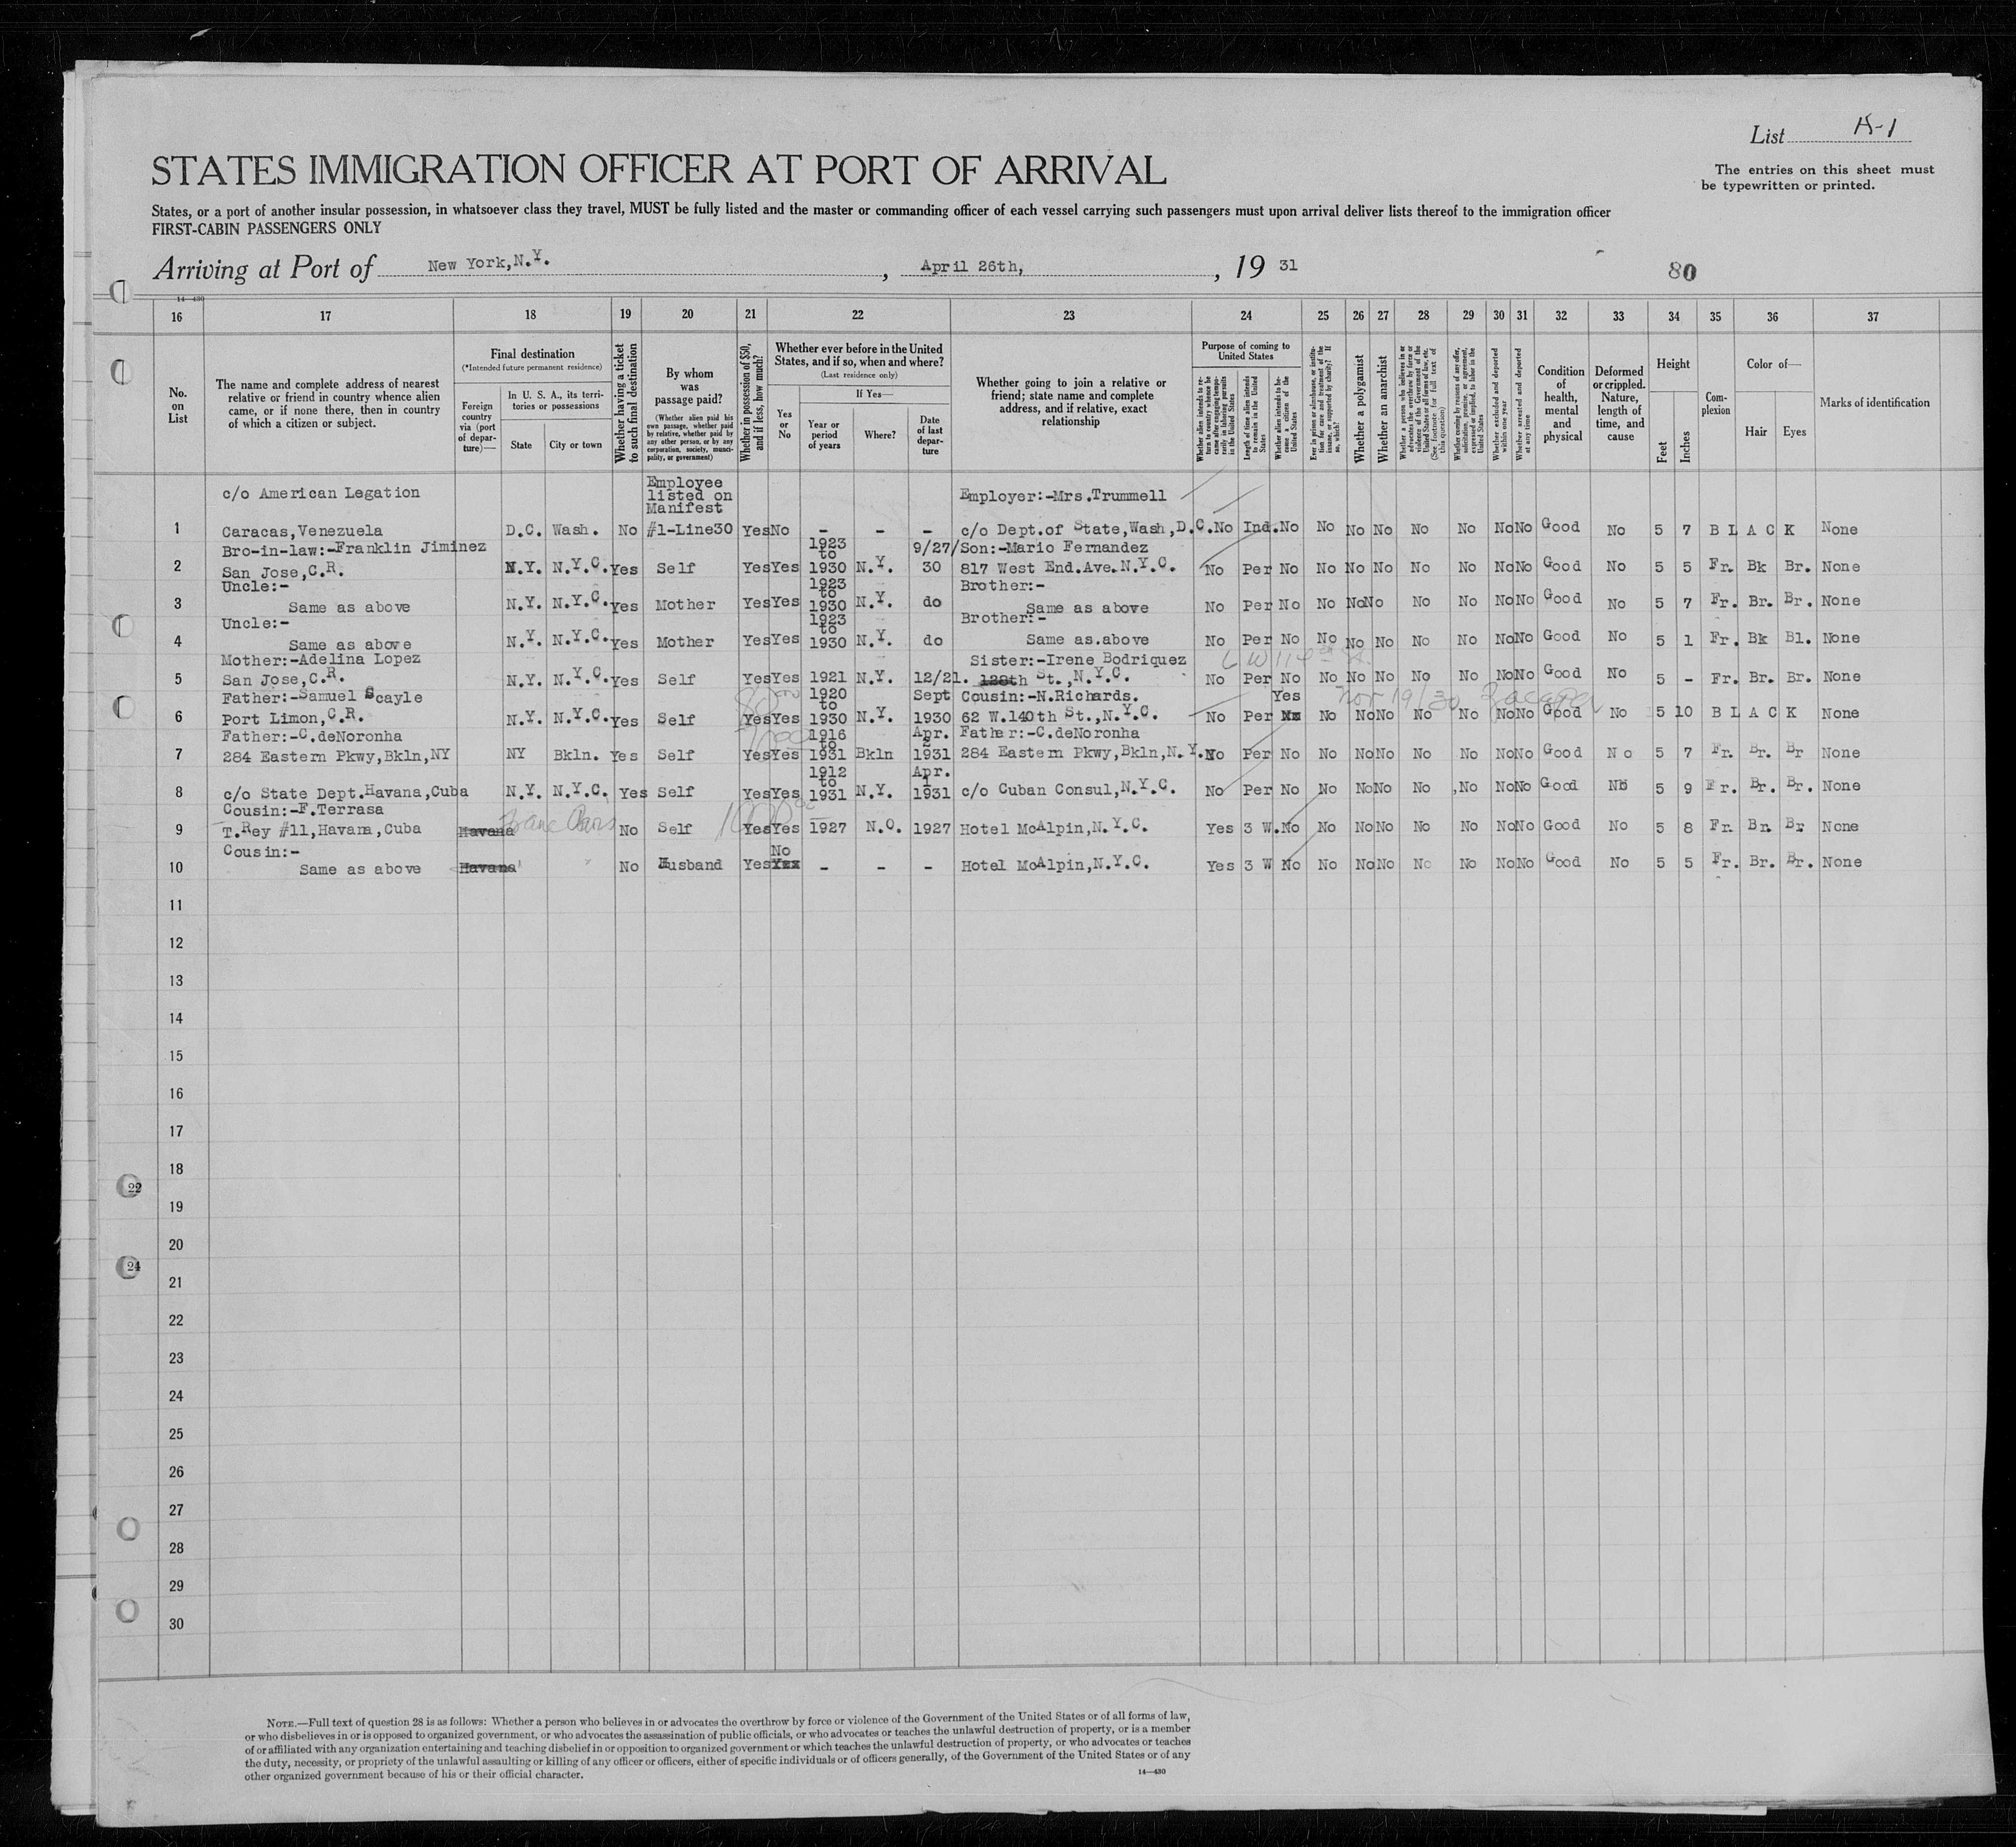 List
STATES IMMIGRATION OFFICER AT PORT OF ARRIVAL
The entries on this sheet must
be typewritten or printed.
States, or a port of another insular possession, in whatsoever class they travel, MUST be fully listed and the master or commanding officer of each vessel carrying such passengers must upon arrival deliver lists thereof to the immigration officer
FIRST-CABIN PASSENGERS ONLY
Arriving at Port of New York, N.Y. , April 26th, , 19 31
80
14—430
16 17 18 19 20 21 22 23 24 25 26 27 28 29 30 31 32 33 34 35 36 37
No. on List
The name and complete address of nearest relative or friend in country whence alien came, or if none there, then in country of which a citizen or subject.
Final destination
(*Intended future permanent residence)
Foreign country via (port of departure)—
In U. S. A., its territories or possessions
State
City or town
Whether having a ticket to such final destination
By whom was passage paid?
(Whether alien paid his own passage, whether paid by relative, whether paid by any other person, or by any corporation, society, municipality, or government)
Whether in possession of $50, and if less, how much?
Whether ever before in the United States, and if so, when and where?
(Last residence only)
Yes or No
If Yes—
Year or period of years
Where?
Date of last departure
Whether going to join a relative or friend; state name and complete address, and if relative, exact relationship
Purpose of coming to United States
Whether alien intends to return to country whence he came after engaging temporarily in laboring pursuits in the United States
Length of time alien intends to remain in the United States
Whether alien intends to become a citizen of the United States
Ever in prison or almshouse, or institution for care and treatment of the insane, or supported by charity? If so, which?
Whether a polygamist
Whether an anarchist
Whether a person who believes in or advocates the overthrow by force or violence of the Government of the United States or all forms of law, etc. (See footnote for full text of this question)
Whether coming by reasons of any offer, solicitation, promise, or agreement, expressed or implied, to labor in the United States
Whether excluded and deported within one year
Whether arrested and deported at any time
Condition of health, mental and physical
Deformed or crippled. Nature, length of time, and cause
Height
Feet
Inches
Complexion
Color of—
Hair
Eyes
Marks of identification
c/o American Legation Employee listed on Manifest Employer:-Mrs.Trummell
1 Caracas,Venezuela D.C. Wash. No #1-Line30 Yes No - - - c/o Dept.of State,Wash,D.C. No Ind. No No No No No No No No Good No 5 7 BLACK None
Bro-in-law:-Franklin Jiminez 1923 to 9/27/ Son:-Mario Fernandez
2 San Jose,C.R. N.Y. N.Y.C. Yes Self Yes Yes 1930 N.Y. 30 817 West End.Ave.N.Y.C. No Per No No No No No No No No Good No 5 5 Fr. Bk Br. None
Uncle:- 1923 to Brother:-
3 Same as above N.Y. N.Y.C. Yes Mother Yes Yes 1930 N.Y. do Same as above No Per No No No No No No No No Good No 5 7 Fr. Br. Br. None
Uncle:- 1923 to Brother:-
4 Same as above N.Y. N.Y.C. Yes Mother Yes Yes 1930 N.Y. do Same as.above No Per No No No No No No No No Good No 5 1 Fr. Bk Bl. None
Mother:-Adelina Lopez Sister:-Irene Bodriquez
5 San Jose,C.R. N.Y. N.Y.C. Yes Self Yes Yes 1921 N.Y. 12/21. 128th St.,N.Y.C. No Per No No No No No No No No Good No 5 - Fr. Br. Br. None
Father:-Samuel Scayle 1920 to Sept Cousin:-N.Richards. Yes Nov 19/30
6 Port Limon,C.R. N.Y. N.Y.C. Yes Self Yes Yes 1930 N.Y. 1930 62 W.140th St.,N.Y.C. No Per No No No No No No No Good No 5 10 BLACK None
Father:-C.deNoronha 1916 to Apr. Father:-C.deNoronha
7 284 Eastern Pkwy,Bkln,NY NY Bkln. Yes Self Yes Yes 1931 Bkln 1931 284 Eastern Pkwy,Bkln,N.Y. No Per No No No No No No No No Good No 5 7 Fr. Br. Br None
1912 to Apr. 1
8 c/o State Dept.Havana,Cuba N.Y. N.Y.C. Yes Self Yes Yes 1931 N.Y. 1931 c/o Cuban Consul,N.Y.C. No Per No No No No No No No No Good No 5 9 Fr. Br. Br. None
Cousin:-F.Terrasa
9 T.Rey #11,Havana,Cuba Havana No Self Yes Yes 1927 N.O. 1927 Hotel McAlpin,N.Y.C. Yes 3 W. No No No No No No No No Good No 5 8 Fr. Br. Br None
Cousin:- No
10 Same as above Havana No Husband Yes Yes - - - Hotel McAlpin,N.Y.C. Yes 3 W No No No No No No No No Good No 5 5 Fr. Br. Br. None
11
12
13
14
15
16
17
18
22
19
20
24
21
22
23
24
25
26
27
28
29
30
NOTE.—Full text of question 28 is as follows: Whether a person who believes in or advocates the overthrow by force or violence of the Government of the United States or of all forms of law,
or who disbelieves in or is opposed to organized government, or who advocates the assassination of public officials, or who advocates or teaches the unlawful destruction of property, or is a member
of or affiliated with any organization entertaining and teaching disbelief in or opposition to organized government or which teaches the unlawful destruction of property, or who advocates or teaches
the duty, necessity, or propriety of the unlawful assaulting or killing of any officer or officers, either of specific individuals or of officers generally, of the Government of the United States or of any
other organized government because of his or their official character.
14—430